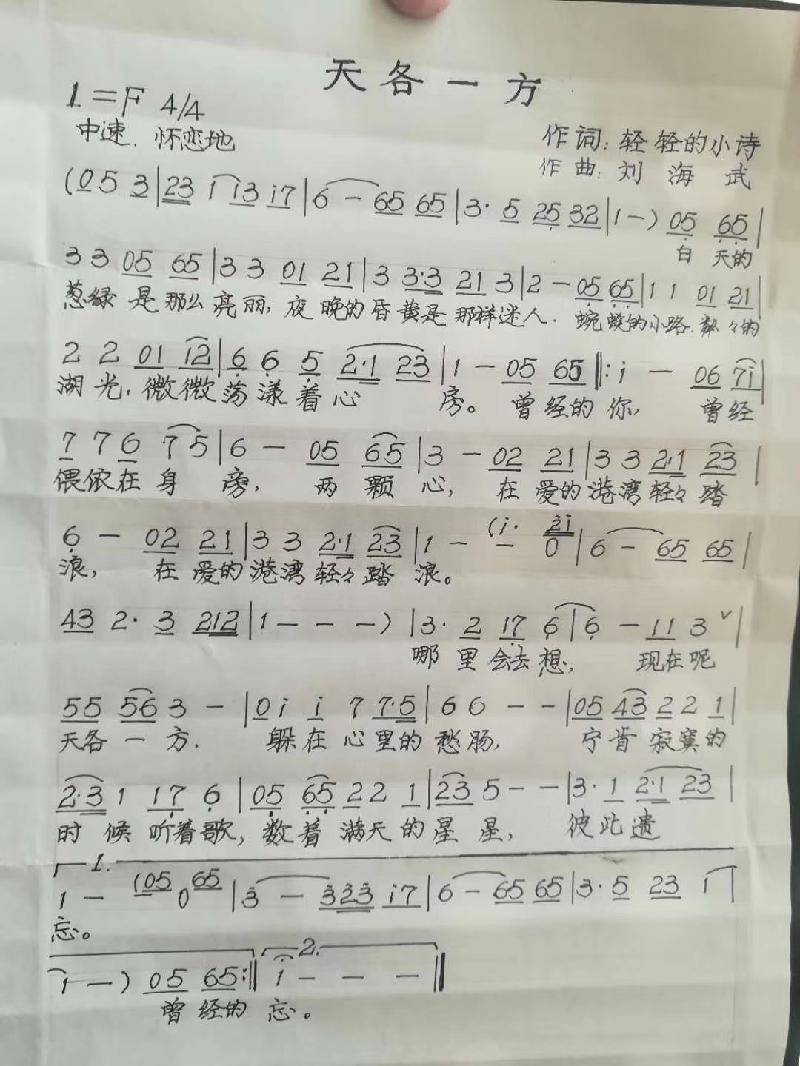 天各一方
1=F 4/4
中速.怀恋地
作词:轻轻的小诗
作曲:刘海武
(05 3|23 i i3 i7|6 - 65 65|3· 5 25 32|1 -) 05 65|
白 天的
3 3 05 65|3 3 01 21|3 3·3 21 3|2 - 05 65|1 1 01 21|
葱绿 是那么亮丽,夜晚的昏黄是那样迷人.蜿蜒的小路.粼々的
2 2 01 12|6 6 5 2·1 23|1 - 05 65‖:i - 06 7i|
湖光,微微荡漾着心 房。曾经的你, 曾经
7 7 6 7 5|6 - 05 65|3 - 02 21|3 3 2·1 23|
偎依在身 旁, 两 颗 心, 在 爱的港湾轻々踏
6 - 02 21|3 3 2·1 23|1 - - (i· 2i 0|6 - 65 65|
浪, 在 爱的港湾轻々踏 浪。
43 2· 3 212|1 - - -)|3· 2 17 6|6 - 11 3 ∨|
哪 里会去想, 现在呢
55 56 3 -|0i i 7 7·5|6 6 - -|05 43 2 2 1|
天各 一 方. 躲在 心里的愁肠, 宁肯 寂寞的
2·3 1 17 6|05 65 2 2 1|23 5 - -|3· 1 2·1 23|
时 候 听着歌,数着 满天的星星, 彼此遗
1.
1 - (05 0 65|3 - 323 i7|6 - 65 65|3· 5 23 1|
忘。
2.
1 -) 05 65:‖i - - -‖
曾 经的 忘。